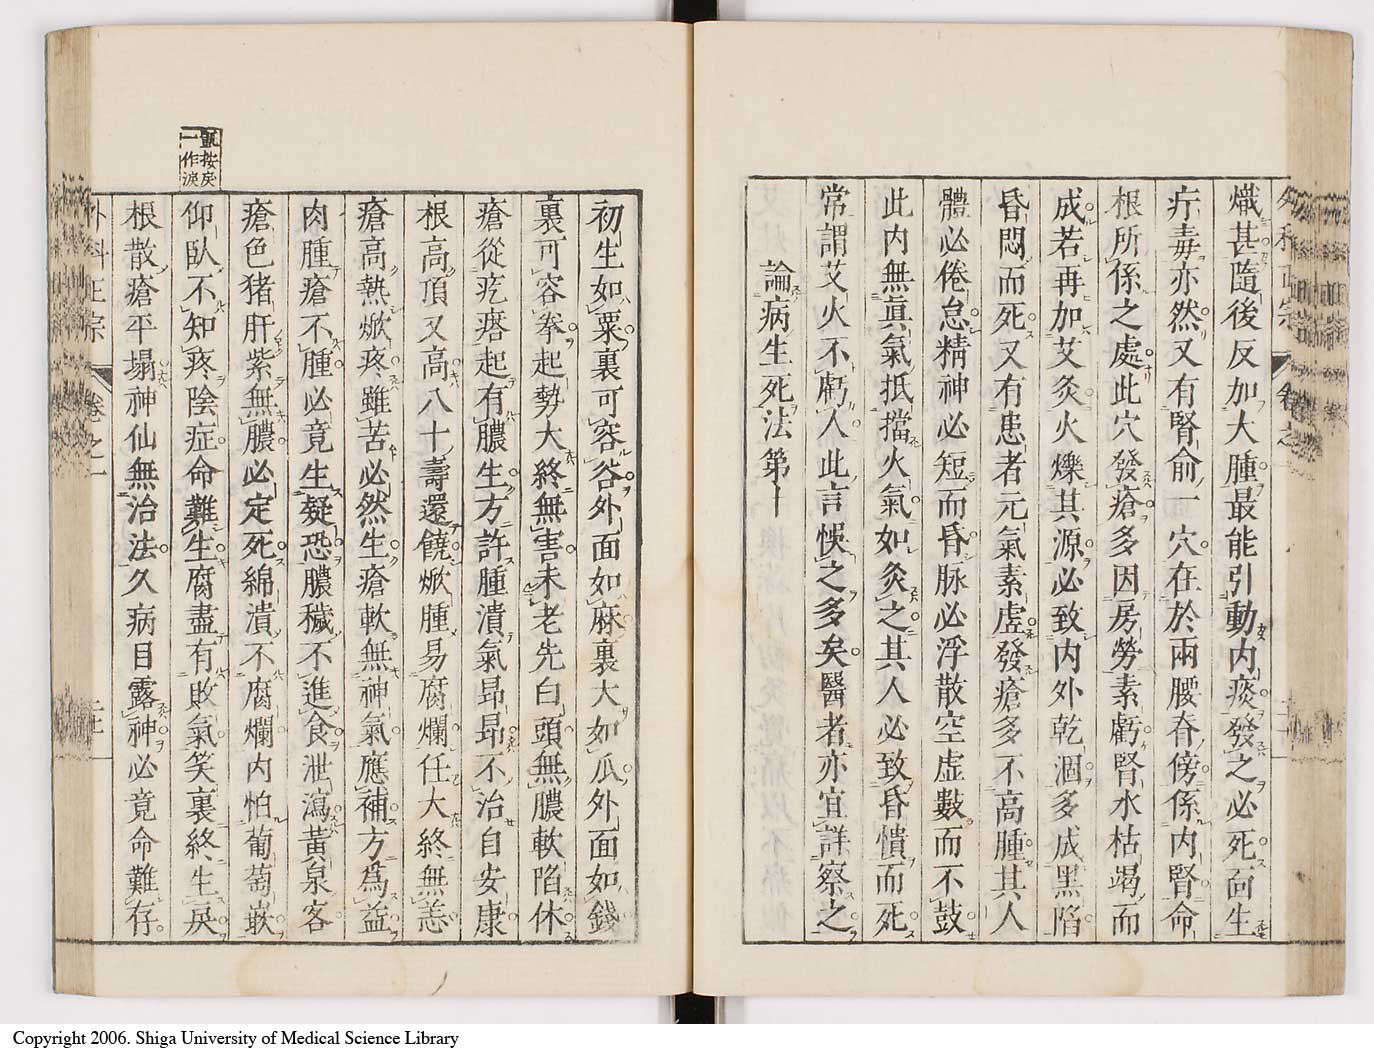 熾甚隨後反加大腫最能引動內痰發之必死面生
疔毒亦然又有腎俞一穴在於兩腰脊傍係內腎命
根所係之處此穴發瘡多因房勞素虧腎水枯竭而
成若再加艾灸火爍其源必致內外乾涸多成黑陷
昏悶而死又有患者元氣素虛發瘡多不高腫其人
體必倦怠精神必短而昏脉必浮散空虛數而不鼓
此內無真氣抵擋火氣如灸之其人必致昏憒而死
常謂艾火不虧人此言悞之多矣醫者亦宜詳察之
論病生死法第十
初生如粟裏可容谷外面如麻裏大如瓜外面如錢
裏可容拳起勢大終無害未老先白頭無膿軟陷休
瘡從疙瘩起有膿生方許腫潰氣昂昂不治自安康
根高頂又高八十壽還饒焮腫易腐爛任大終無恙
瘡高熱焮疼雖苦必然生瘡軟無神氣應補方為益
肉腫瘡不腫必竟生疑恐膿穢不進食泄瀉黃泉客
瘡色猪肝紫無膿必定死綿潰不腐爛內怕葡萄嵌
仰臥不知疼陰症命難生腐盡有敗氣笑裏終生戾
根散瘡平塌神仙無治法久病目露神必竟命難存
外科正宗 卷之一
甑按戾
一作淚